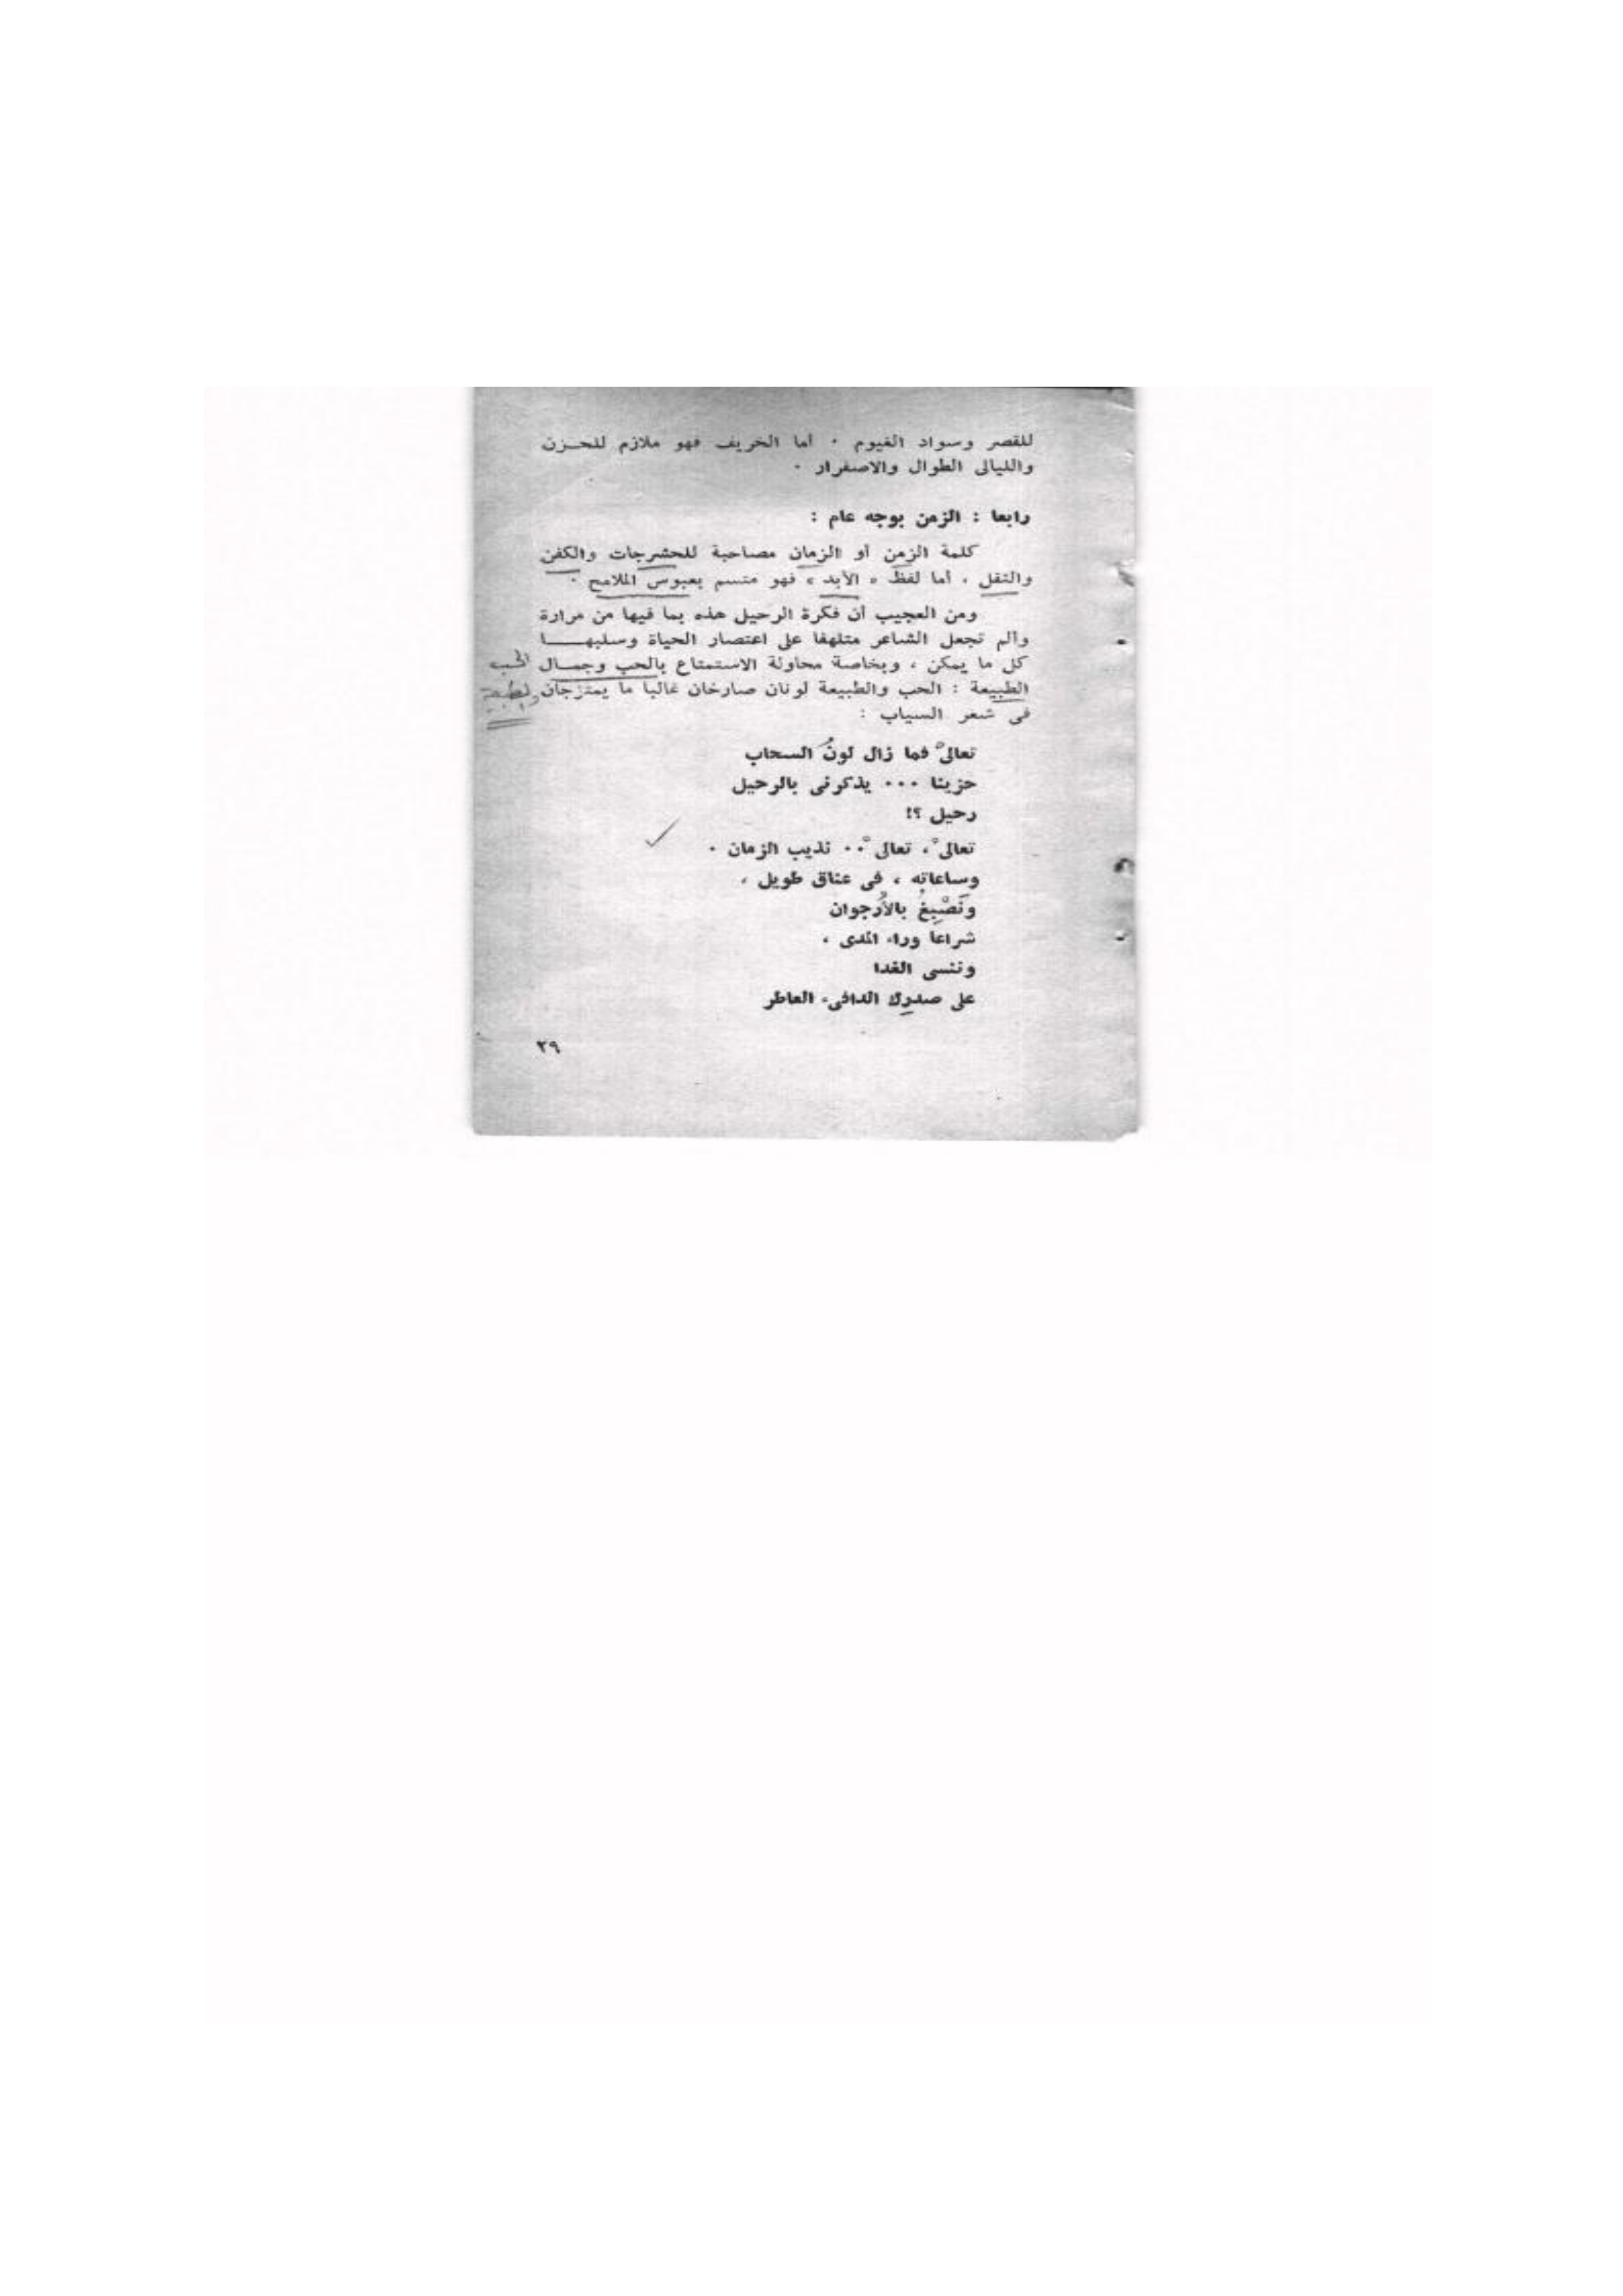 للقصر وسواد الغيوم . أما الخريف فهو ملازم للحـزن
والليالى الطوال والاصفرار .
رابعا : الزمن بوجه عام :
كلمة الزمن أو الزمان مصاحبة للحشرجات والكفن
والثقل ، أما لفظ « الأبد » فهو متسم بعبوس الملامح .
ومن العجيب أن فكرة الرحيل هذه بما فيها من مرارة
وألم تجعل الشاعر متلهفا على اعتصار الحياة وسلبهـــا
كل ما يمكن ، وبخاصة محاولة الاستمتاع بالحب وجمـال
الطبيعة : الحب والطبيعة لونان صارخان غالبا ما يمتزجان
فى شعر السياب :
الحب
والطبيعة
تعالىْ فما زال لونُ السحاب
حزينا ... يذكرنى بالرحيل
رحيل ؟!
تعالىْ ، تعالىْ .. نذيب الزمان .
وساعاته ، فى عناق طويل ،
ونَصْبِغُ بالأُرجوان
شراعا وراء المدى ،
وننسى الغدا
على صدرِك الدافىء العاطر
٢٩